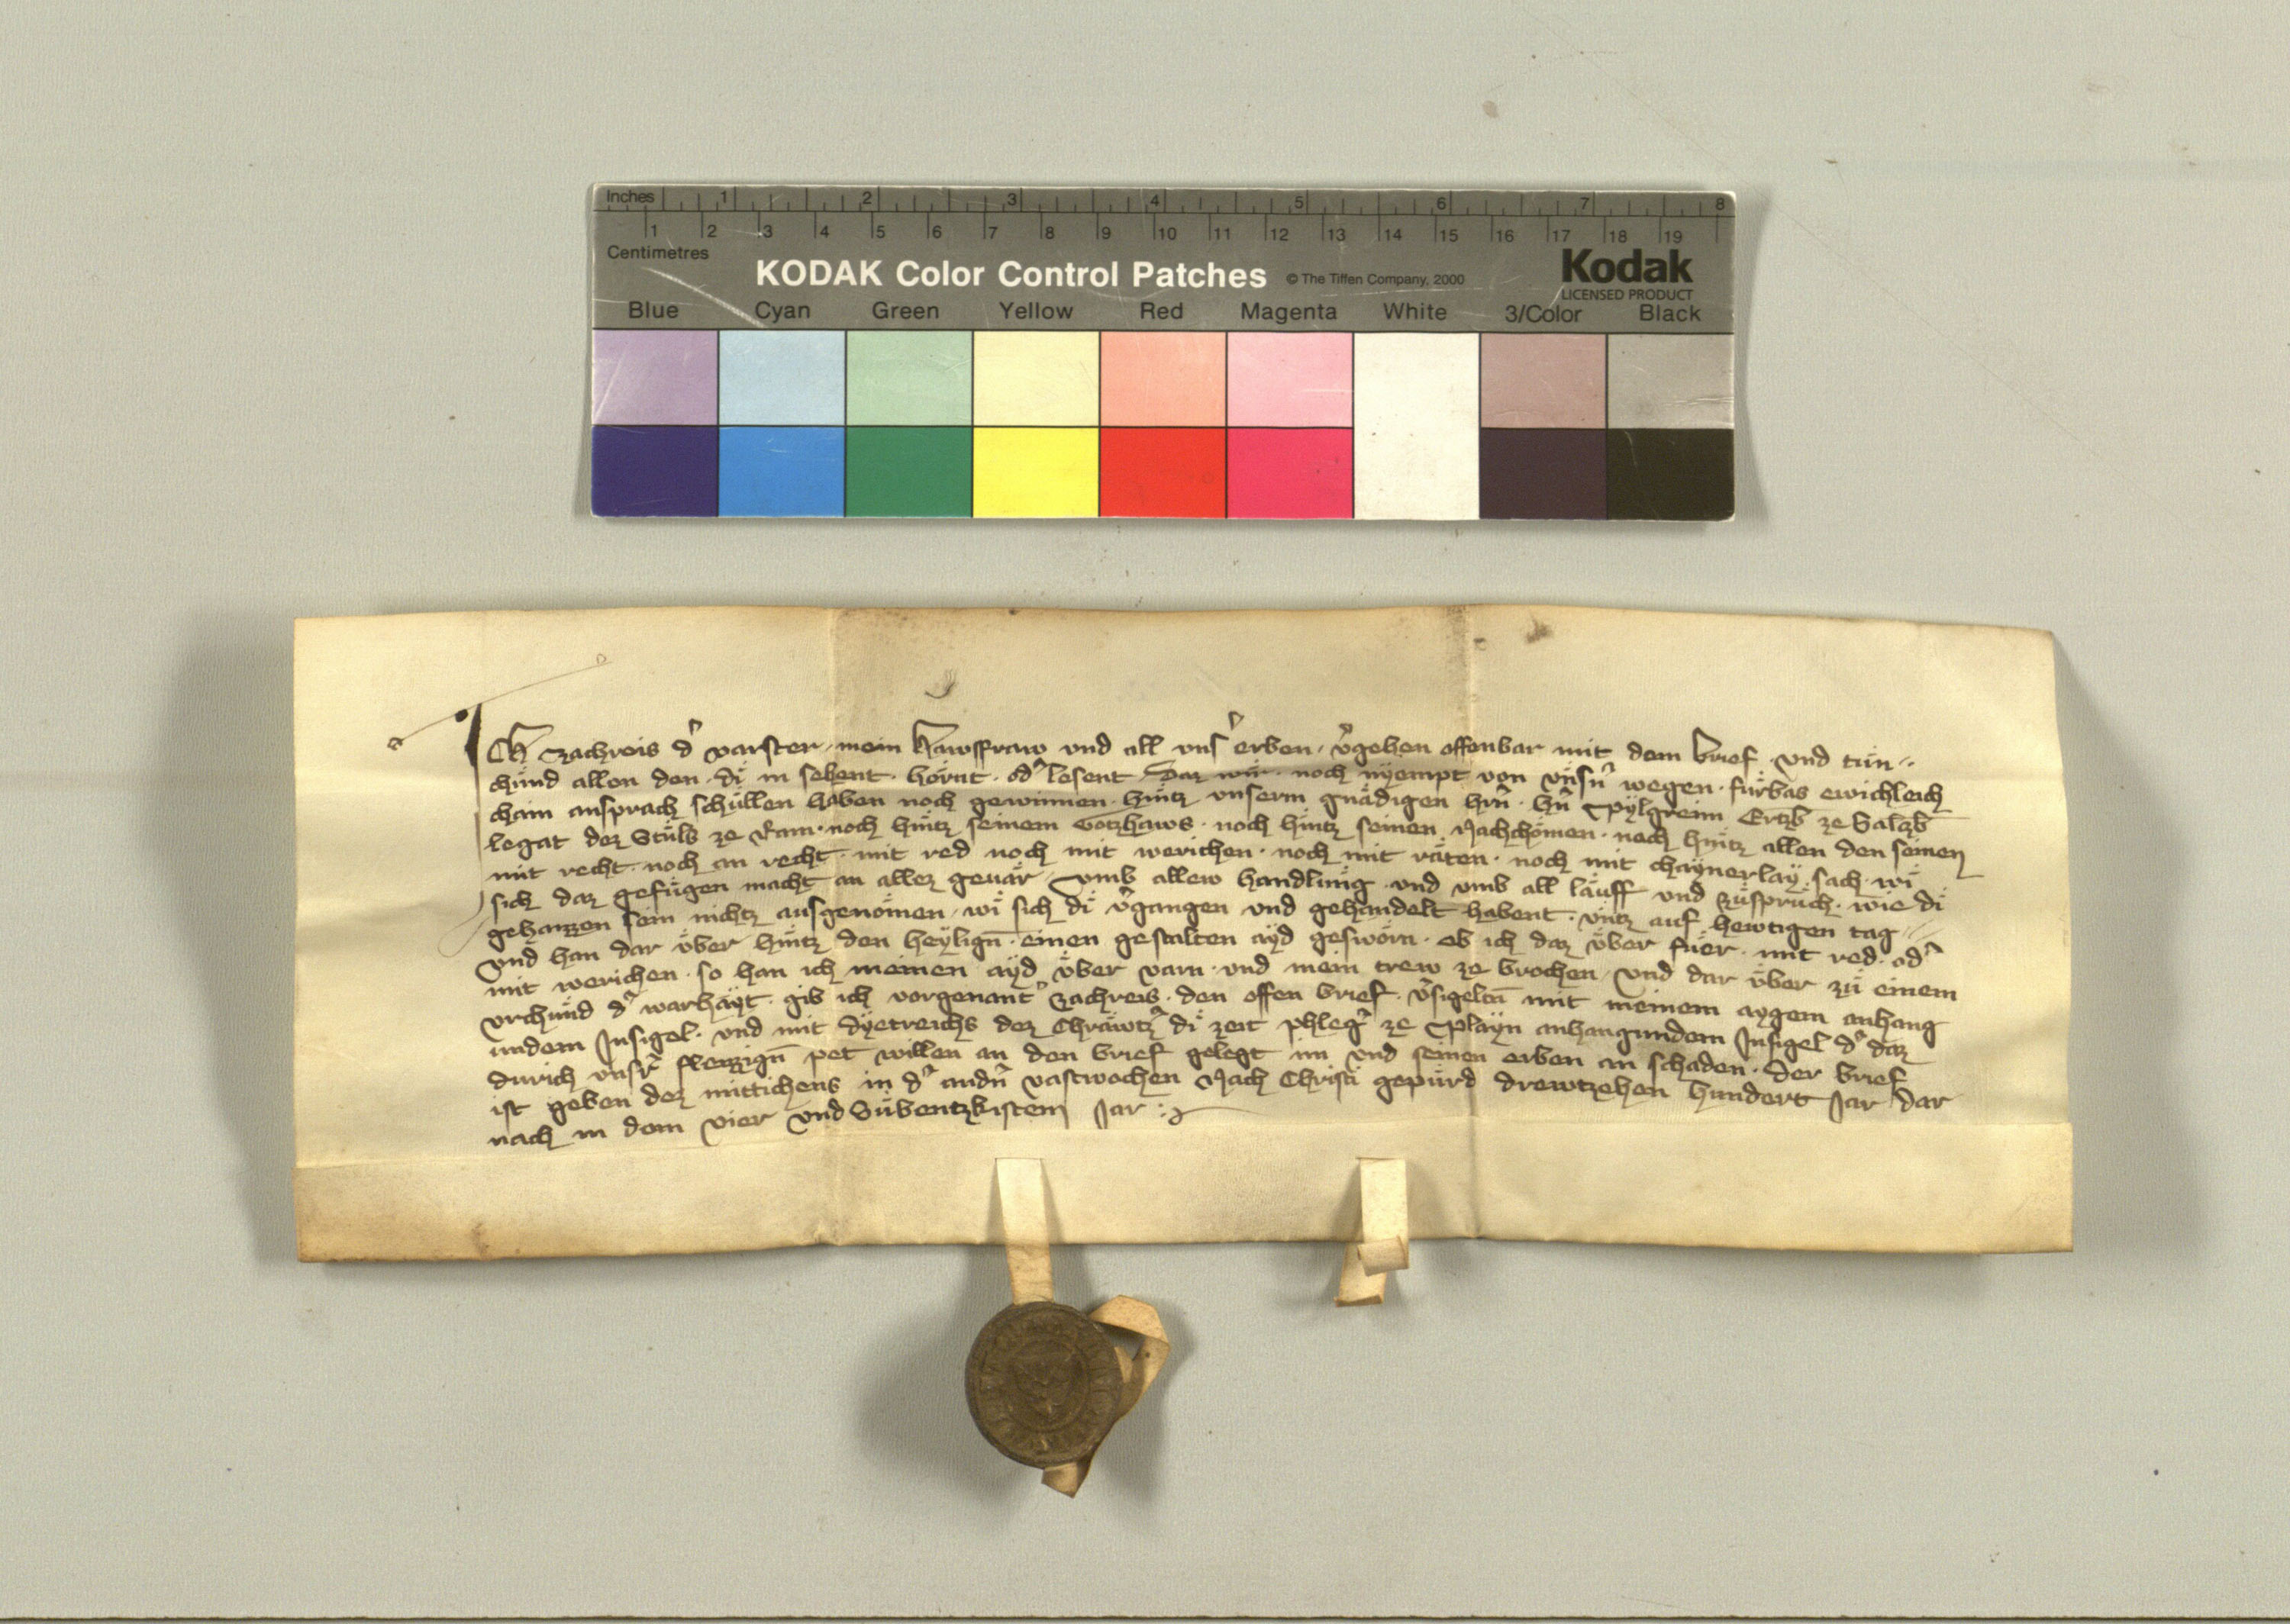 Inches 1 2 3 4 5 6 7 8
1 2 3 4 5 6 7 8 9 10 11 12 13 14 15 16 17 18 19
Centimetres
KODAK Color Control Patches © The Tiffen Company, 2000
Kodak
LICENSED PRODUCT
Blue Cyan Green Yellow Red Magenta White 3/Color Black
Ich Zachreis d' varster mein hawsfraw vnd all vns' erben v'gehen offenbar mit dem brief vnd tün
chünd allen den di in sehent hörnt od' lesent Daz wir noch nyempt von vnsn' wegen fürbas ewichleich
chain ansprach schüllen haben noch gewinnen hintz vnserm gnädigen hn' hn' Pylgreim Ertzb ze Saltzb
legat dez Stüls ze Ram noch hintz seinem Gotzhaws noch hintz seinen Nachchömen noch hintz allen den seinen
mit recht noch an recht mit red noch mit werichen noch mit räten noch mit chaynerlay sach wi
sich daz gefügen macht an allez geuär vmb allew handlung vnd vmb all läuff vnd züsprüch wie di
gehaizzen sein nichtz ausgenömen wi sich di v'gangen vnd gehandelt habent vntz auf hewtigen tag
Vnd han dar über hintz den heylign einen gestalten ayd geswörn ob ich daz über füer mit red od'
mit werichen so han ich meinen ayd über varn vnd mein trew ze brochen vnd dar über zü einem
vrchünd d' warhäyt gib ich vorgenant' Zachreis den offen brief v'sigelten mit meinem aygem anhang
undem Insigel vnd mit dyetreichs dez Chräwtz' di zeit phleg' ze Playn anhangundem Insigel d' daz
durich vnsr' fleizzign pet willen an den brief gelegt im vnd seinen erben an schaden Der brief
ist geben dez mittichens in d' andn' vastwochen Nach Christi gepürd drewtzehen hundert Jar dar
nach in dem vier vnd Sübentzkistem Jar